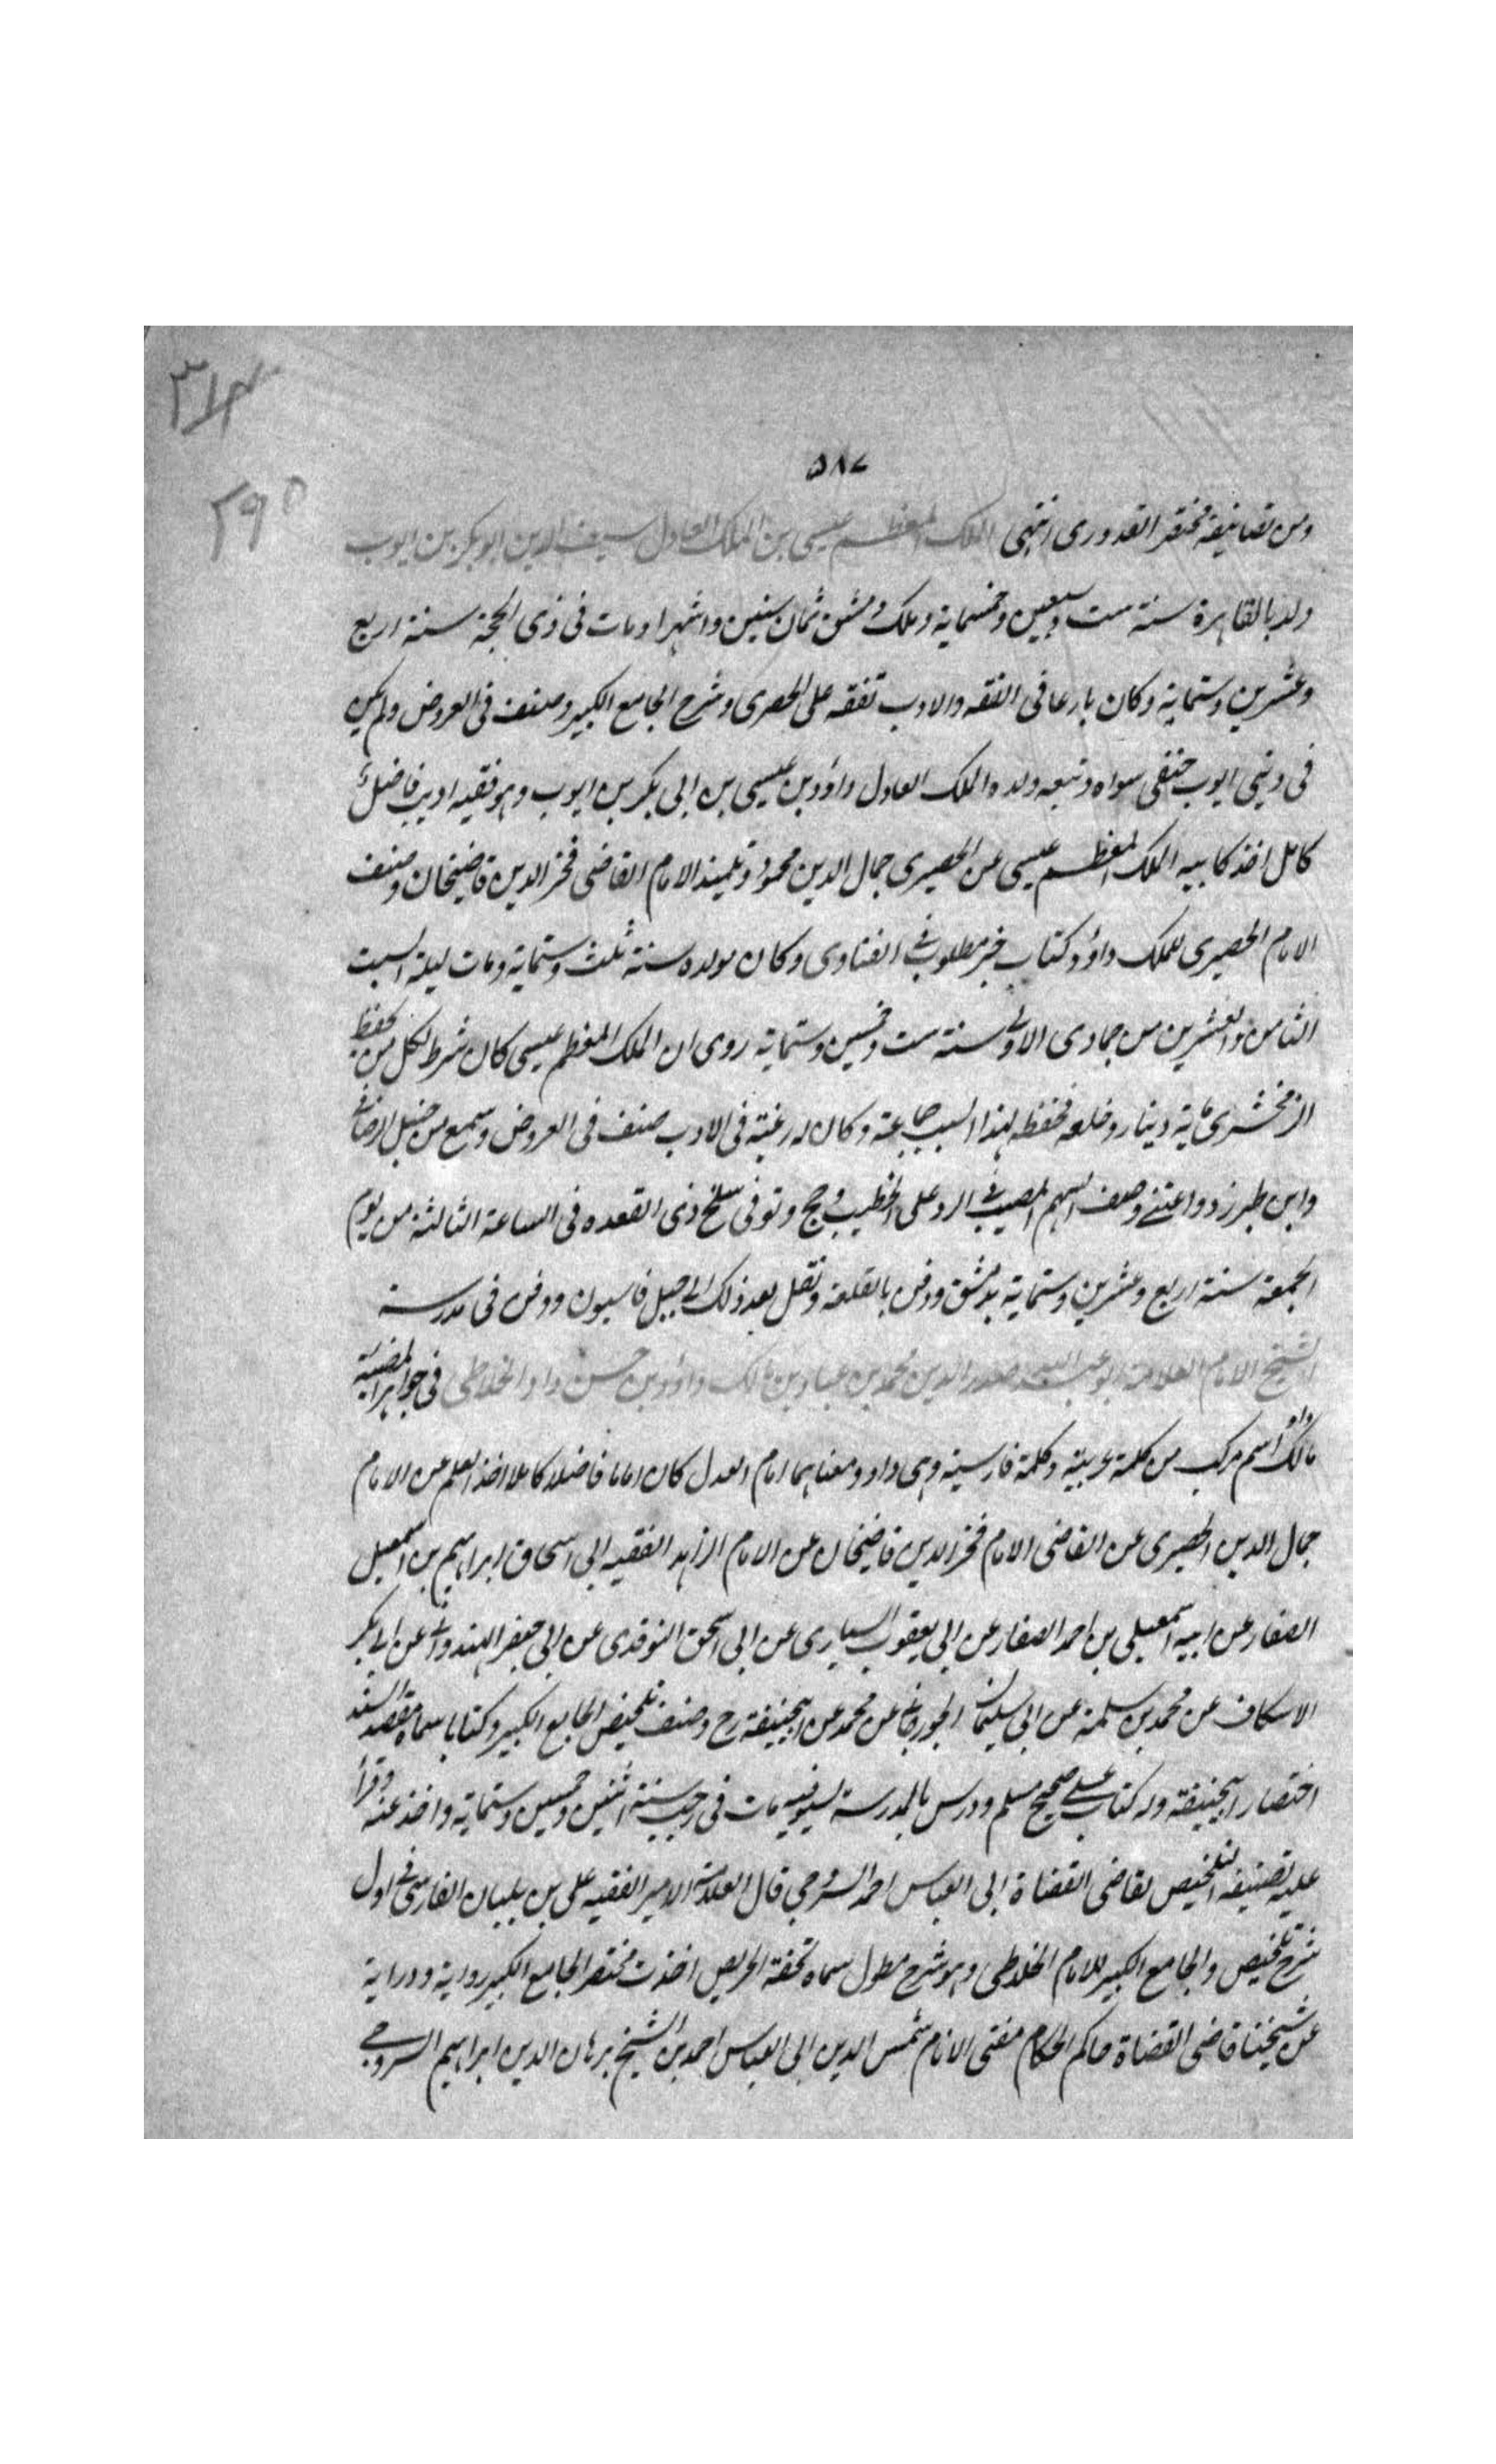 ٣١٣
٢٩٥
٥٨٧
ومن تصانيفه مختصر القدوری انتهی الملک المعظم عیسی بن الملک العادل سیف الدین ابو بکر بن ایوب
ولد بالقاهرة سنة ست وسبعین وخمسمایة وملک دمشق ثمان سنین واشهرا ومات فی ذی الحجة سنة اربع
وعشرین وستمایة وکان بارعا فی الفقه والادب تفقه علی الحصری وشرح الجامع الکبیر وصنف فی العروض ولم یکن
فی بنی ایوب حنفی سواه وتبعه ولده الملک العادل داؤد بن عیسی بن ابی بکر بن ایوب وهو فقیه ادیب فاضل
کامل اخذ کابیه الملک المعظم عیسی عن الحصیری جمال الدین محمود تلمیذ الامام القاضی فخر الدین قاضیخان وصنف
الامام الحصیری للملک داؤد کتاب خیر مطلوب فی الفتاوی وکان مولده سنة ثلث وستمایة ومات لیلة السبت
الثامن والعشرین من جمادی الاولی سنة ست وخمسین وستمایة روی ان الملک المعظم عیسی کان شرط لکل من یحفظ
الزمخشری مایة دینار وخلعه فحفظه لهذا السبب جماعة وکان له رغبة فی الادب صنف فی العروض وسمع من حنبل الرصافی
وابن طبرزد واعتنی وصنف السهم المصیب فی الرد علی الخطیب وحج وتوفی سلخ ذی القعده فی الساعة الثالثة من یوم
الجمعة سنة اربع وعشرین وستمایة بدمشق ودفن بالقلعة ونقل بعد ذلک الی جبل قاسیون ودفن فی مدرسته
الشیخ الامام العلامة ابو عبد الله صدر الدین محمد بن عباد بن مالک داؤد بن حسن داود الخلاطی فی جواهر المضیئة
مالک داو اسم مرکب من کلمة عربیة وکلمة فارسیة وهی داد ومعناهما امام العدل کان اماما فاضلا کاملا اخذ العلم عن الامام
جمال الدین الحصیری عن القاضی الامام فخر الدین قاضیخان عن الامام الزاهد الفقیه ابی اسحاق ابراهیم بن اسمعیل
الصفار عن ابیه اسمعیلی بن احمد الصفار عن ابی یعقوب السیاری عن ابی اسحق النوقدی عن ابی جعفر الهندوانی عن ابی بکر
الاسکاف عن محمد بن سلمة عن ابی سلیمان الجورجانی عن محمد عن ابیحنیفة رح وصنف تلخیص الجامع الکبیر وکتابا سماه مقصد المسند
اختصار ابیحنیفة وله کتاب علی صحیح مسلم ودرس بالمدرسة السیوفیه مات فی رجب سنة اثنین وخمسین وستمایة واخذ عنه وقرأ
علیه تصنیفه التلخیص لقاضی القضاة ابی العباس احمد السروجی قال العلامة الامیر الفقیه علی بن بلبان الفارسی فی اول
شرح تلخیص والجامع الکبیر للامام الخلاطی وهو شرح مطول سماه تحفة الحریص اخذت مختصر الجامع الکبیر روایة ودرایة
عن شیخنا قاضی القضاة حاکم الحکام مفتی الانام شمس الدین ابی العباس احمد بن الشیخ برهان الدین ابراهیم السروجی